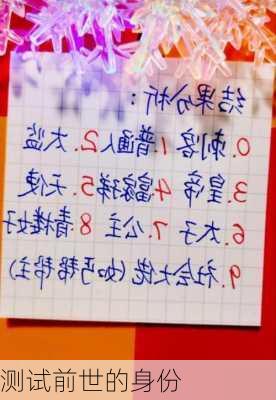 结果分析：
0.刺客 1.普通人 2.太监
3.皇帝 4.富家孩 5.天使
6.太子 7.公主 8青楼女子
9.社会大佬(如丐帮帮主)
测试前世的身份